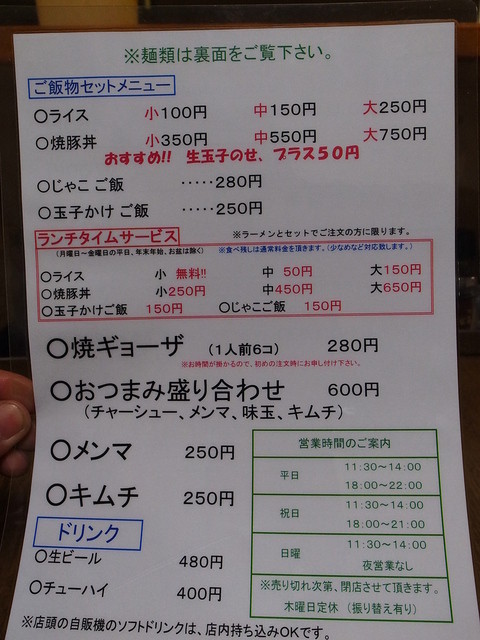 ※麺類は裏面をご覧下さい。
ご飯物セットメニュー
○ライス 小100円 中150円 大250円
○焼豚丼 小350円 中550円 大750円
おすすめ!! 生玉子のせ、プラス50円
○じゃこ ご飯 ‥‥‥280円
○玉子かけ ご飯 ‥‥‥250円
ランチタイムサービス ※ラーメンとセットでご注文の方に限ります。
(月曜日～金曜日の平日、年末年始、お盆は除く) ※食べ残しは通常料金を頂きます。(少なめなど対応致します。)
○ライス 小 無料!! 中 50円 大150円
○焼豚丼 小250円 中450円 大650円
○玉子かけご飯 150円 ○じゃこご飯 150円
○焼ギョーザ (1人前6コ) 280円
※お時間が掛かるので、初めの注文時にお申し付け下さい。
○おつまみ盛り合わせ 600円
(チャーシュー、メンマ、味玉、キムチ)
○メンマ 250円
○キムチ 250円
ドリンク
○生ビール 480円
○チューハイ 400円
営業時間のご案内
平日 11:30～14:00
18:00～22:00
祝日 11:30～14:00
18:00～21:00
日曜 11:30～14:00
夜営業なし
※売り切れ次第、閉店させて頂きます。
木曜日定休 (振り替え有り)
※店頭の自販機のソフトドリンクは、店内持ち込みOKです。